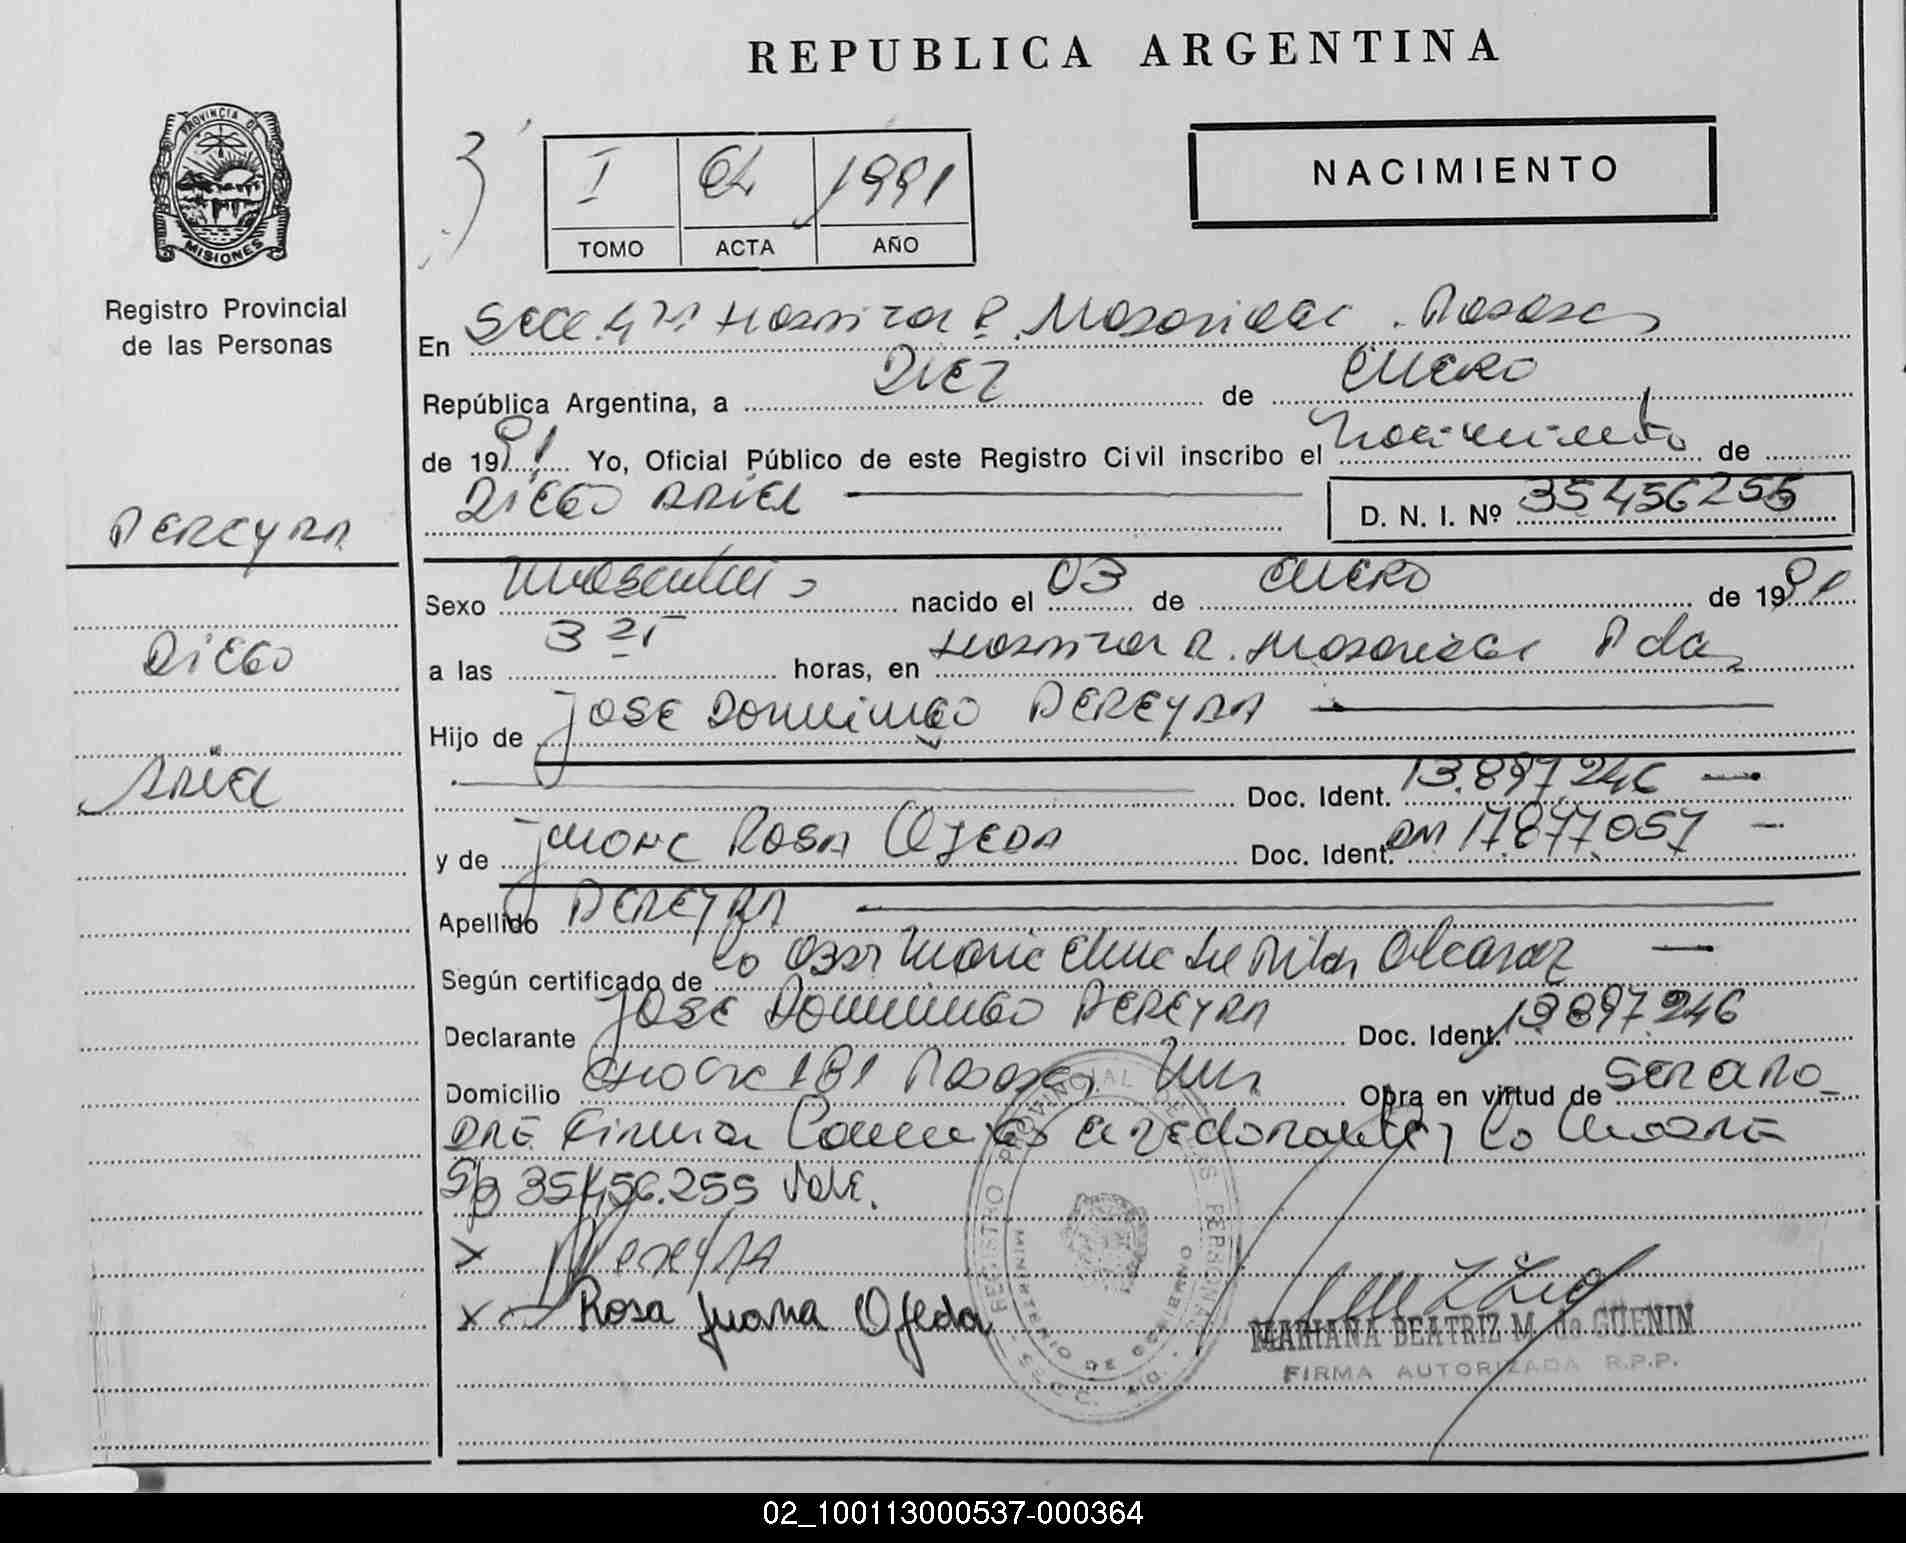 REPUBLICA ARGENTINA
PROVINCIA DE
MISIONES
Registro Provincial
de las Personas
I 1991
TOMO ACTA AÑO
NACIMIENTO
En Secc. 4ta Hospital R. Posadas
República Argentina, a DIEZ de ENERO
de 1991 Yo, Oficial Público de este Registro Civil inscribo el Nacimiento de
DIEGO ARIEL D. N. I. Nº 35456255
PEREYRA
DIEGO
ARIEL
Sexo Masculino nacido el 03 de ENERO de 1991
a las 3 horas, en Hospital R. Pdas
Hijo de JOSE DOMINGO PEREYRA
Doc. Ident. 13.897.246
y de JUANA ROSA OJEDA Doc. Ident. DNI 17.877.057
Apellido PEREYRA
Según certificado de la Obst Maria del Pilar Alcaraz
Declarante JOSE DOMINGO PEREYRA Doc. Ident. 13.897.246
Domicilio 181 Posadas Mnes Obra en virtud de SER EL PADRE
Firma la Madre
S/B 35.456.255 VALE.
X Pereyra
X Rosa Juana Ojeda
REGISTRO PROVINCIAL DE LAS PERSONAS
MINISTERIO DE GOBIERNO
MARIANA BEATRIZ M. de GÜENIN
FIRMA AUTORIZADA R.P.P.
02_100113000537-000364